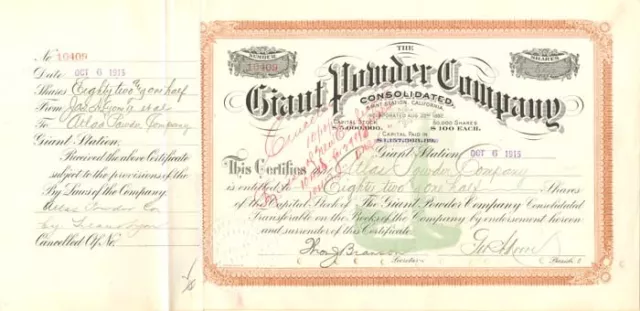 No 10409
Date OCT 6 1915
Shares Eighty two & one half
From
To Atlas Powder Company
Giant Station.
Received the above Certificate
subject to the provisions of the
By Laws of the Company.
Atlas Powder Co
By
Cancelled Ctf. No.
NUMBER
10409
SHARES
THE
Giant Powder Company
CONSOLIDATED.
GIANT STATION, CALIFORNIA.
INCORPORATED
CAPITAL STOCK $5,000,000. 50,000 SHARES $100 EACH.
CAPITAL PAID IN
Giant Station OCT 6 1915
This Certifies Atlas Powder Company
is entitled to Eighty two & one half Shares
of the Capital Stock of The Giant Powder Company Consolidated
Transferable on the Books of the Company by endorsement hereon
and surrender of this Certificate
Secretary
President